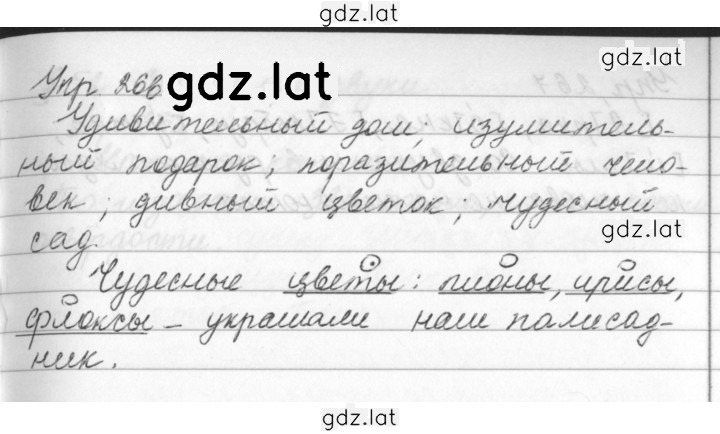 gdz.lat
gdz.lat
Упр. 268 gdz.lat
Удивительный дом, изумитель-
ный подарок; поразительный чело-
век; дивный цветок; чудесный
сад.
gdz.lat
Чудесные цветы: пионы, ирисы,
флоксы – украшали наш палисад-
ник.
gdz.lat